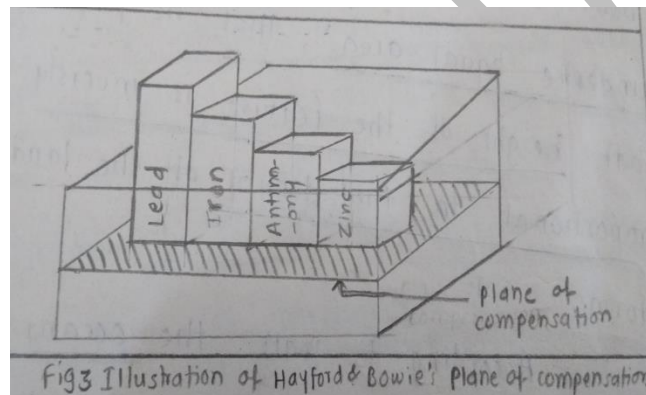 Lead
Iron
Antim-
-ony
Zinc
plane of
compensation
Fig3 Illustration of Hayford & Bowie's Plane of compensation